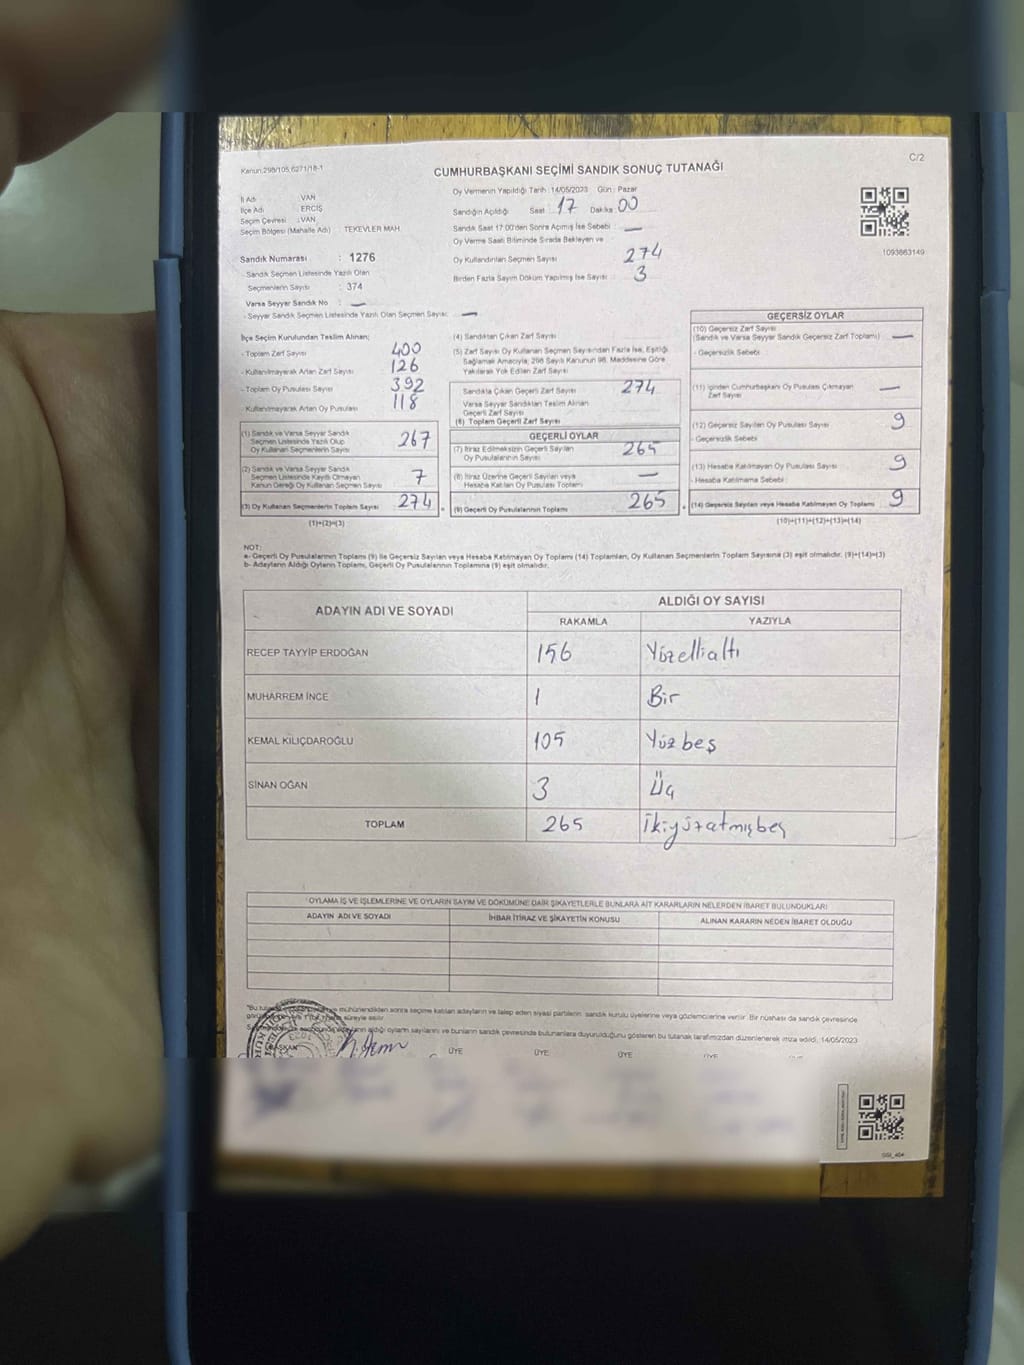 C/2
Kanun:298/105,6271/18-1
CUMHURBAŞKANI SEÇİMİ SANDIK SONUÇ TUTANAĞI
İl Adı : VAN
İlçe Adı : ERCİŞ
Seçim Çevresi : VAN
Seçim Bölgesi (Mahalle Adı) : TEKEVLER MAH.
Sandık Numarası : 1276
- Sandık Seçmen Listesinde Yazılı Olan
Seçmenlerin Sayısı : 374
Varsa Seyyar Sandık No : —
- Seyyar Sandık Seçmen Listesinde Yazılı Olan Seçmen Sayısı: —
Oy Vermenin Yapıldığı Tarih :14/05/2023 Gün : Pazar
Sandığın Açıldığı Saat : 17 Dakika : 00
Sandık Saat 17:00'den Sonra Açılmış İse Sebebi : —
Oy Verme Saati Bitiminde Sırada Bekleyen ve
Oy Kullandırılan Seçmen Sayısı 274
Birden Fazla Sayım Döküm Yapılmış İse Sayısı : 3
1093863149
İlçe Seçim Kurulundan Teslim Alınan;
- Toplam Zarf Sayısı 400
- Kullanılmayarak Artan Zarf Sayısı 126
- Toplam Oy Pusulası Sayısı 392
- Kullanılmayarak Artan Oy Pusulası 118
(1) Sandık ve Varsa Seyyar Sandık
Seçmen Listesinde Yazılı Olup
Oy Kullanan Seçmenlerin Sayısı 267
(2) Sandık ve Varsa Seyyar Sandık
Seçmen Listesinde Kayıtlı Olmayan
Kanun Gereği Oy Kullanan Seçmen Sayısı 7
(3) Oy Kullanan Seçmenlerin Toplam Sayısı 274
(1)+(2)=(3)
(4) Sandıktan Çıkan Zarf Sayısı
(5) Zarf Sayısı Oy Kullanan Seçmen Sayısından Fazla İse, Eşitliği
Sağlamak Amacıyla; 298 Sayılı Kanunun 98. Maddesine Göre
Yakılarak Yok Edilen Zarf Sayısı
Sandıkta Çıkan Geçerli Zarf Sayısı 274
Varsa Seyyar Sandıktan Teslim Alınan
Geçerli Zarf Sayısı
(6) Toplam Geçerli Zarf Sayısı
GEÇERLİ OYLAR
(7) İtiraz Edilmeksizin Geçerli Sayılan
Oy Pusulalarının Sayısı 265
(8) İtiraz Üzerine Geçerli Sayılan veya
Hesaba Katılan Oy Pusulası Toplamı —
(9) Geçerli Oy Pusulalarının Toplamı 265
GEÇERSİZ OYLAR
(10) Geçersiz Zarf Sayısı
(Sandık ve Varsa Seyyar Sandık Geçersiz Zarf Toplamı) —
- Geçersizlik Sebebi:
(11) İçinden Cumhurbaşkanı Oy Pusulası Çıkmayan
Zarf Sayısı —
(12) Geçersiz Sayılan Oy Pusulası Sayısı 9
- Geçersizlik Sebebi:
(13) Hesaba Katılmayan Oy Pusulası Sayısı 9
- Hesaba Katılmama Sebebi:
(14) Geçersiz Sayılan veya Hesaba Katılmayan Oy Toplamı 9
(10)+(11)+(12)+(13)=(14)
NOT:
a- Geçerli Oy Pusulalarının Toplamı (9) ile Geçersiz Sayılan veya Hesaba Katılmayan Oy Toplamı (14) Toplamları, Oy Kullanan Seçmenlerin Toplam Sayısına (3) eşit olmalıdır. (9)+(14)=(3)
b- Adayların Aldığı Oyların Toplamı, Geçerli Oy Pusulalarının Toplamına (9) eşit olmalıdır.
ADAYIN ADI VE SOYADI
ALDIĞI OY SAYISI
RAKAMLA YAZIYLA
RECEP TAYYİP ERDOĞAN 156 Yüzellialtı
MUHARREM İNCE 1 Bir
KEMAL KILIÇDAROĞLU 105 Yüzbeş
SİNAN OĞAN 3 Üç
TOPLAM 265 İkiyüzatmışbeş
OYLAMA İŞ VE İŞLEMLERİNE VE OYLARIN SAYIM VE DÖKÜMÜNE DAİR ŞİKAYETLERLE BUNLARA AİT KARARLARIN NELERDEN İBARET BULUNDUKLARI
ADAYIN ADI VE SOYADI İHBAR İTİRAZ VE ŞİKAYETİN KONUSU ALINAN KARARIN NEDEN İBARET OLDUĞU
mühürlendikten sonra seçime katılan adayların ve talep eden siyasi partilerin sandık kurulu üyelerine veya gözlemcilerine verilir. Bir nüshası da sandık çevresinde
süreyle asılır.
adayların aldığı oyların sayılarını ve bunların sandık çevresinde bulunanlara duyurulduğunu gösteren bu tutanak tarafımızdan düzenlenerek imza edildi. 14/05/2023
BAŞKAN ÜYE ÜYE ÜYE ÜYE